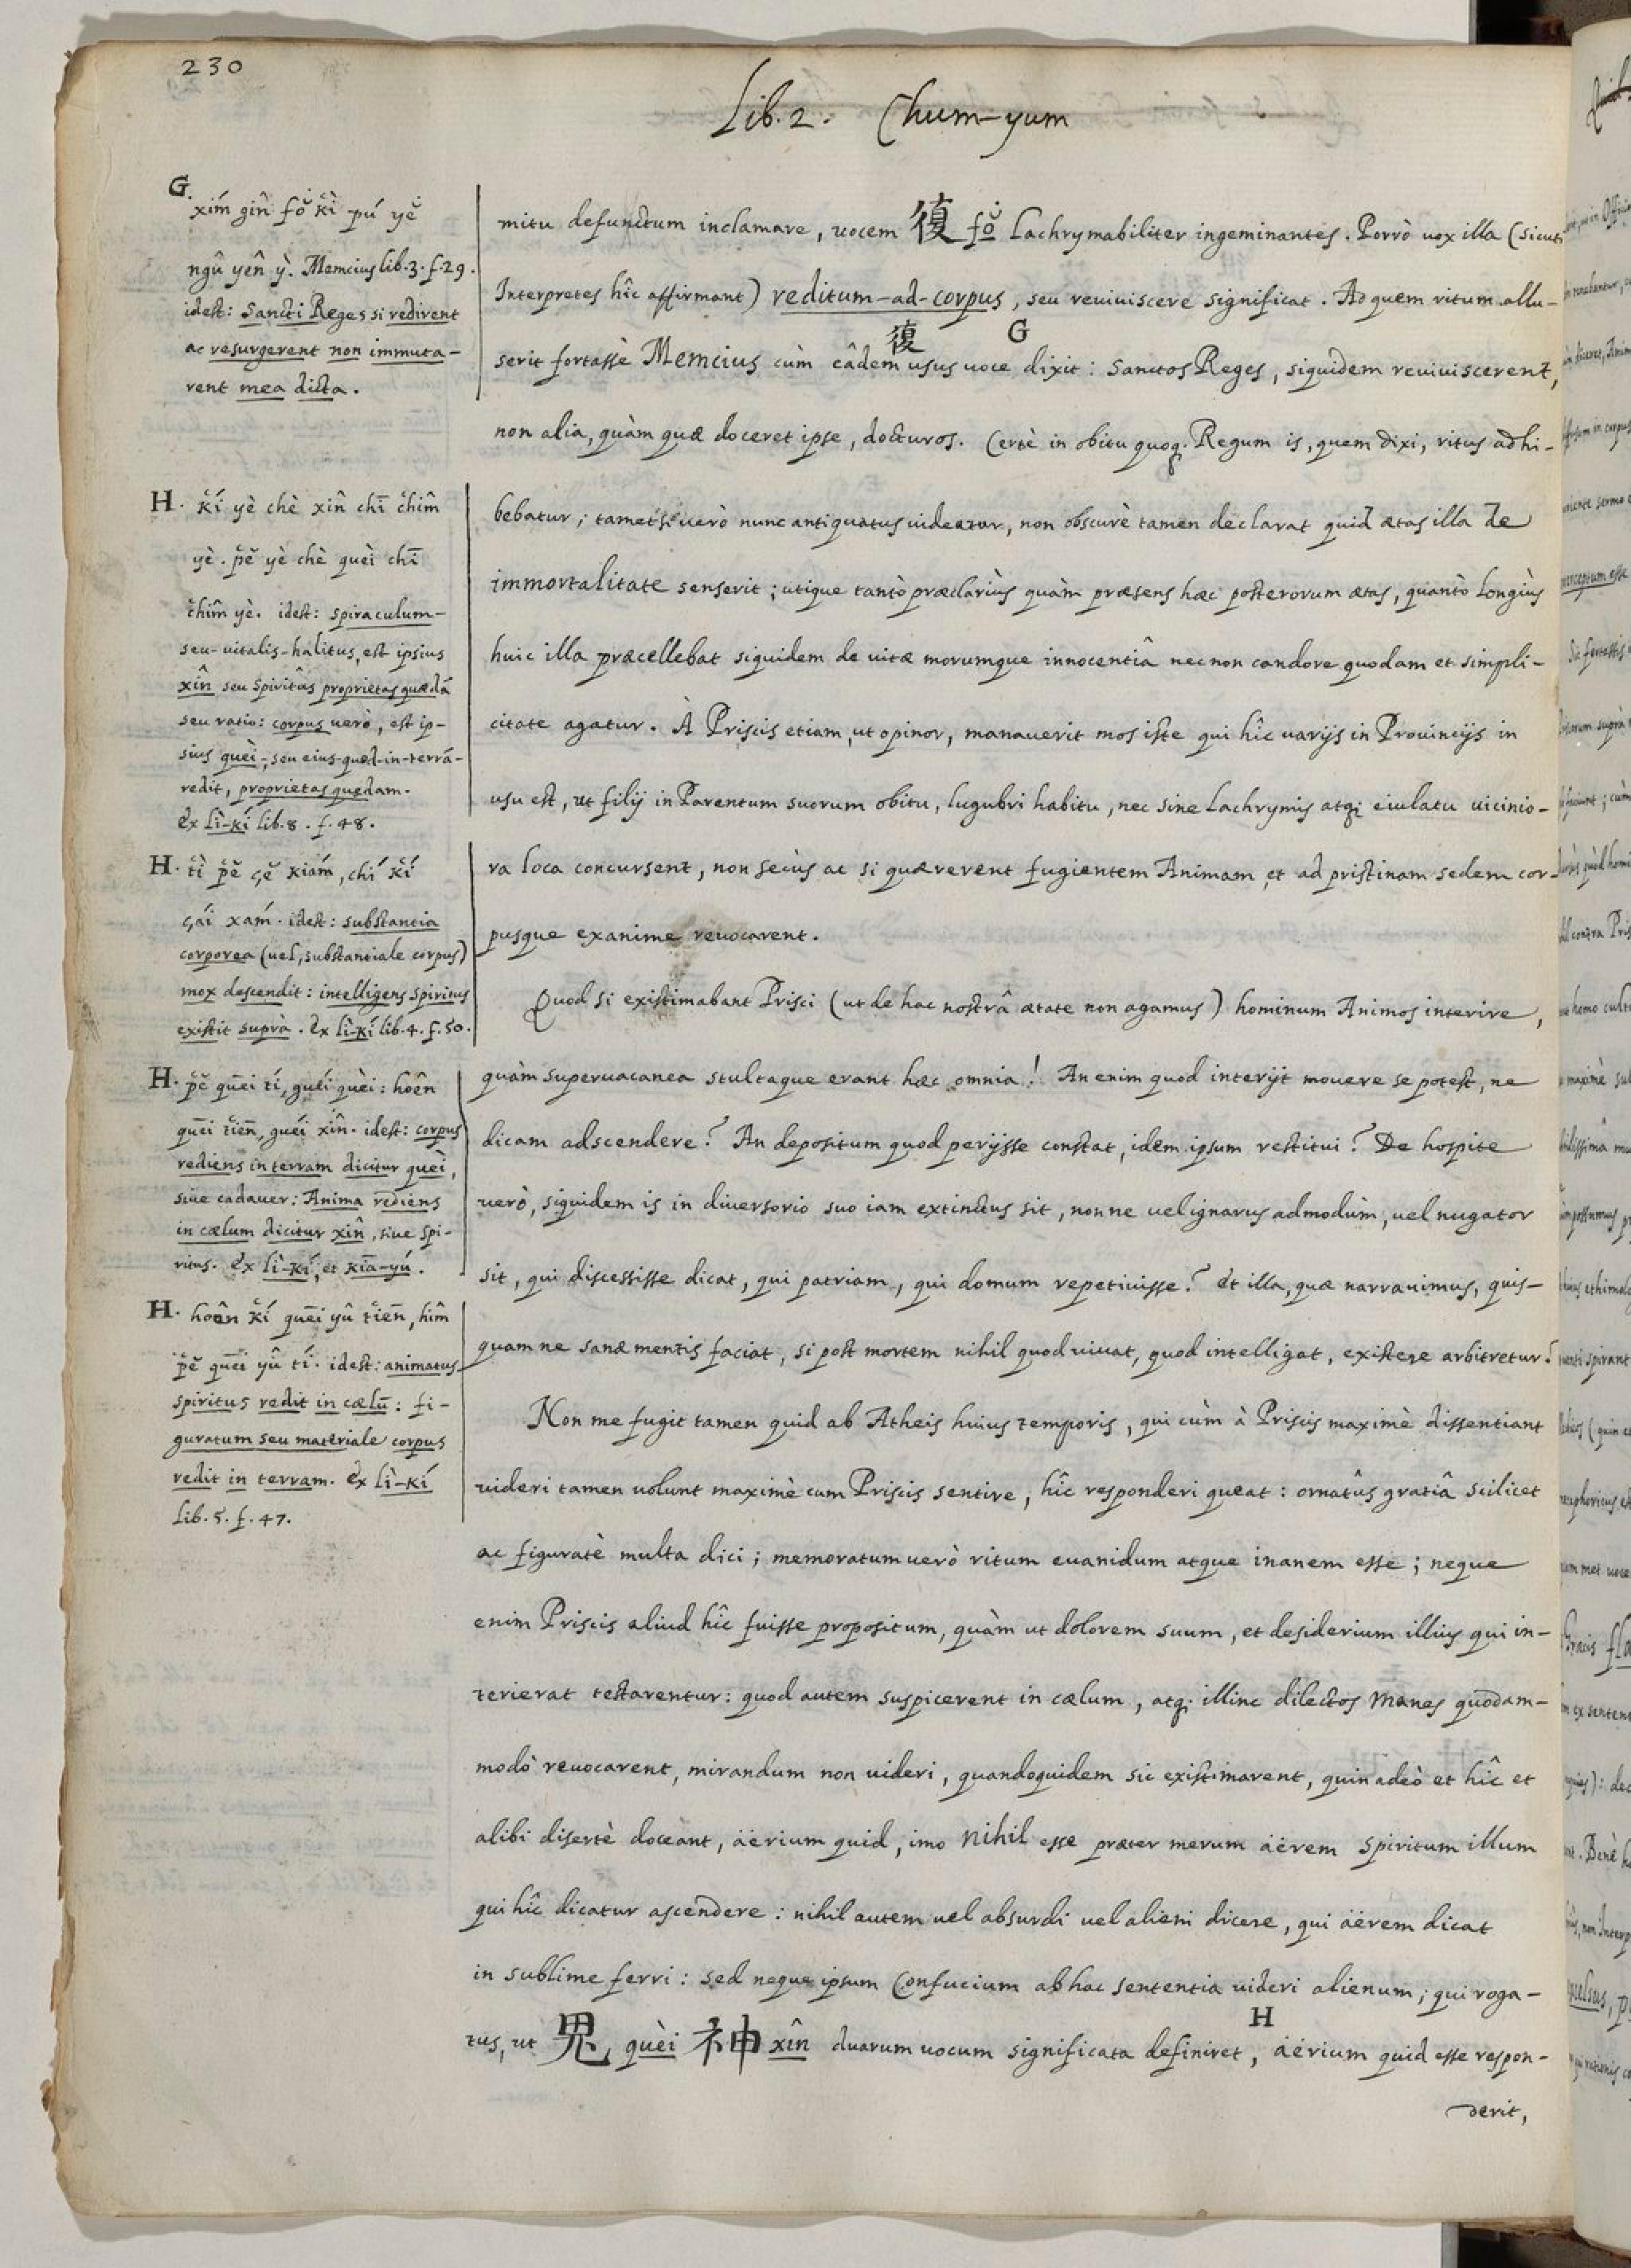 230
Lib. 2. Chum-yum
G.
xím gîn fǒ kì pú yĕ
ngû yên ỳ. Memcius lib. 3. f. 29.
idest: Sancti Reges si redirent
ac resurgerent non immuta-
rent mea dicta.
H. kí yè chè xîn chī chîm
yè. pĕ yè chè quèi chī
chîm yè. idest: spiraculum-
seu-vitalis-halitus, est ipsius
xîn seu Spiritûs proprietas quædā
seu ratio: corpus uerò, est ip-
sius quèi, seu eius-quod-in-terrā-
redit, proprietas quædam.
Ex lì-kí lib. 8. f. 48.
H. tì pĕ çĕ kiám, chí kí
çái xám. idest: substantia
corporea (uel, substantiale corpus)
mox descendit: intelligens spiritus
existit suprà. Ex lì-kí lib. 4. f. 50.
H. pĕ quēi tí, guéi quèi: hoên
quēi tiēn, guéi xîn. idest: corpus
rediens in terram dicitur quèi,
siue cadauer: Anima rediens
in cælum dicitur xîn, siue spi-
ritus. Ex lì-kí, et kiā-yú.
H. hoên kí quēi yû tiēn, hîm
pĕ quēi yû tí. idest: animatus
spiritus redit in cælū: fi-
guratum seu materiale corpus
redit in terram. Ex lì-kí
lib. 5. f. 47.
mitu defunctum inclamare, uocem 復 fŏ lachrymabiliter ingeminantes. Porrò uox illa (sicuti
Interpretes hîc affirmant) reditum-ad-corpus, seu reuiuiscere significat. Ad quem ritum allu-
復 G
serit fortassè Memcius cùm eâdem usus uoce dixit: Sanctos Reges, siquidem reuiuiscerent,
non alia, quàm quæ doceret ipse, docturos. Certè in obitu quoq; Regum is, quem dixi, ritus adhi-
bebatur; tametsi uerò nunc antiquatus uideatur, non obscurè tamen declarat quid ætas illa de
immortalitate senserit; utique tantò præclariùs quàm præsens hæc posterorum ætas, quantò longiùs
huic illa præcellebat siquidem de uitæ morumque innocentiâ necnon candore quodam et simpli-
citate agatur. À Priscis etiam, ut opinor, manauerit mos iste qui hîc uarijs in Prouincijs in
usu est, ut filij in Parentum suorum obitu, lugubri habitu, nec sine lachrymis atq; eiulatu uicinio-
ra loca concursent, non secùs ac si quærerent fugientem Animam et ad pristinam sedem cor-
pusque exanime reuocarent.
Quod si existimabant Prisci (ut de hac nostrâ ætate non agamus) hominum Animos interire,
quàm superuacanea stultaque erant hæc omnia! An enim quod interijt mouere se potest, ne
dicam adscendere? An depositum quod perijsse constat, idem ipsum restitui? De hospite
uerò, siquidem is in diuersorio suo iam extinctus sit, nonne uel ignarus admodùm, uel nugator
sit, qui discessisse dicat, qui patriam, qui domum repetiuisse? et illa, quæ narrauimus, quis-
quam ne sanæ mentis faciat, si post mortem nihil quod uiuat, quod intelligat, existere arbitretur?
Non me fugit tamen quid ab Atheis huius temporis, qui cùm à Priscis maximè dissentiant
uideri tamen uolunt maximè cum Priscis sentire, hîc responderi queat: ornatûs gratiâ scilicet
ac figuratè multa dici; memoratum uerò ritum euanidum atque inanem esse; neque
enim Priscis aliud hîc fuisse propositum, quàm ut dolorem suum, et desiderium illius qui in-
terierat testarentur: quod autem suspicerent in cælum, atq; illinc dilectos Manes quodam-
modò reuocarent, mirandum non uideri, quandoquidem sic existimarent, quin adeò et hîc et
alibi disertè doceant, äërium quid, imo nihil esse præter merum äërem spiritum illum
qui hîc dicatur ascendere: nihil autem uel absurdi uel alieni dicere, qui äërem dicat
in sublime ferri: sed neque ipsum Confucium ab hac sententia uideri alienum; qui roga-
H
tus, ut 鬼 quèi 神 xîn duarum uocum significata definiret, äërium quid esse respon-
derit,